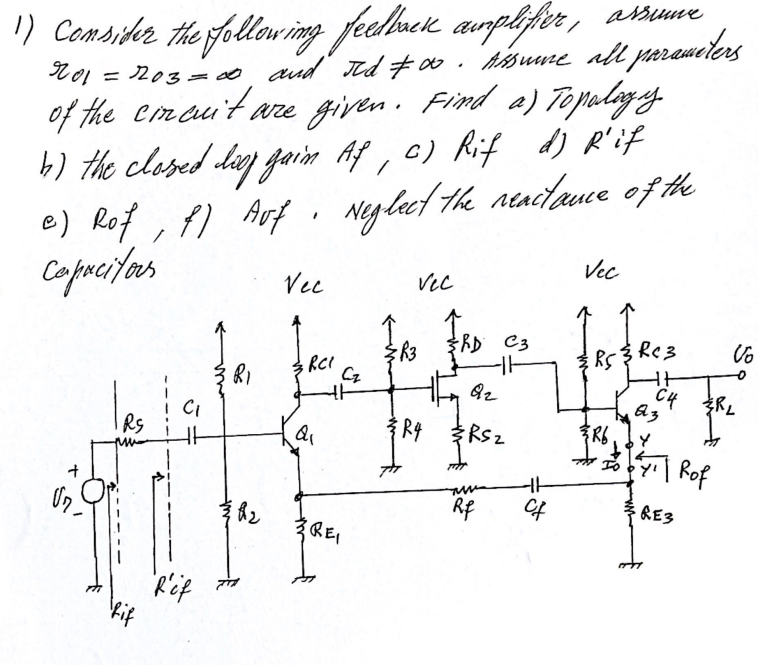 1) Consider the following feedback amplifier, assume
ro1 = ro3 = ∞ and rd ≠ ∞ . Assume all parameters
of the circuit are given. Find a) Topology
b) the closed loop gain Af , c) Rif d) R'if
e) Rof , f) Avf . Neglect the reactance of the
Capacitors
Vcc Vcc Vcc
R1 RC1 C2 R3 RD C3 R5 RC3 Vo
RS C1 Q1 R4 Q2 RS2 R6 Q3 C4 RL
+ Y
Io Y' Rof
-
R2 RE1 Rf Cf RE3
R'if
Rif